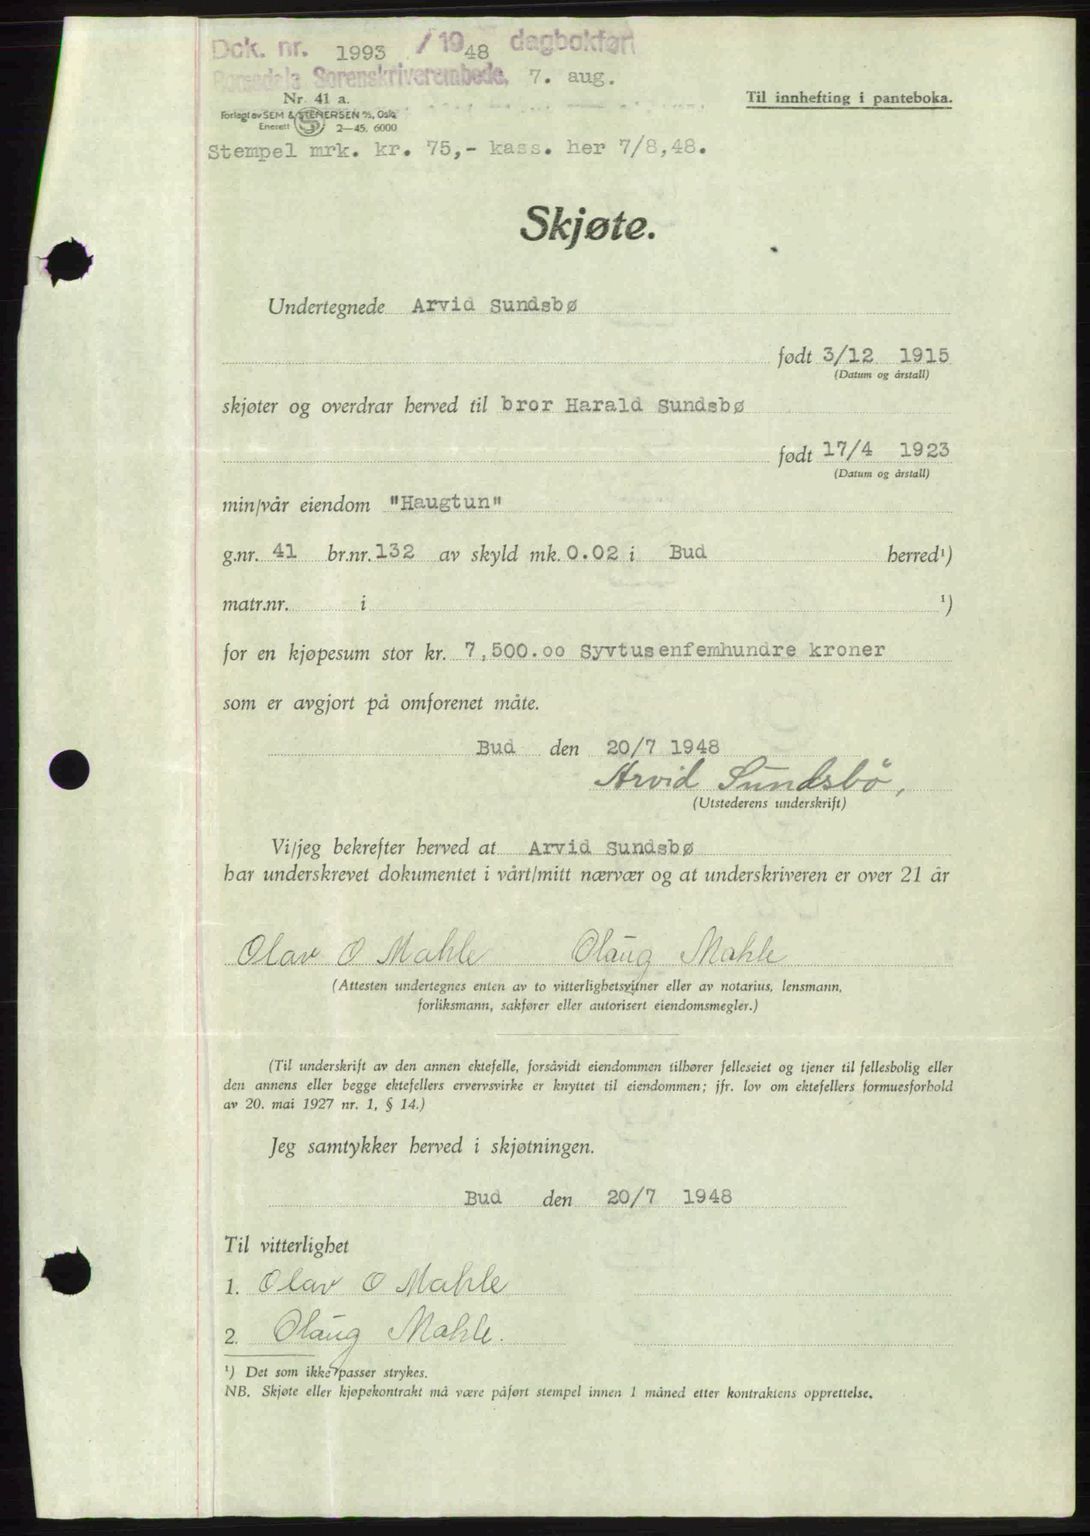 Dok. nr. 1993 / 19 48 dagbokført
Romsdals Sorenskriverembede, 7. aug.
Nr. 41 a.
Til innhefting i panteboka.
Forlagt av SEM & STENERSEN A/S, Oslo
Enerett 2—45. 6000
Stempel mrk. kr. 75,- kass. her 7/8,48.
Skjøte.
Undertegnede Arvid Sundsbø
født 3/12 1915
(Datum og årstall)
skjøter og overdrar herved til bror Harald Sundsbø
født 17/4 1923
(Datum og årstall)
min/vår eiendom "Haugtun"
g.nr. 41 br.nr. 132 av skyld mk. 0.02 i Bud herred¹)
matr.nr. i ¹)
for en kjøpesum stor kr. 7,500.oo Syvtusenfemhundre kroner
som er avgjort på omforenet måte.
Bud den 20/7 1948
Arvid Sundsbö,
(Utstederens underskrift)
Vi/jeg bekrefter herved at Arvid Sundsbø
har underskrevet dokumentet i vårt/mitt nærvær og at underskriveren er over 21 år
Olav O Mahle Olaug Mahle
(Attesten undertegnes enten av to vitterlighetsvitner eller av notarius, lensmann,
forliksmann, sakfører eller autorisert eiendomsmegler.)
(Til underskrift av den annen ektefelle, forsåvidt eiendommen tilhører felleseiet og tjener til fellesbolig eller
den annens eller begge ektefellers ervervsvirke er knyttet til eiendommen; jfr. lov om ektefellers formuesforhold
av 20. mai 1927 nr. 1, § 14.)
Jeg samtykker herved i skjøtningen.
Bud den 20/7 1948
Til vitterlighet
1. Olav O Mahle
2. Olaug Mahle.
¹) Det som ikke passer strykes.
NB. Skjøte eller kjøpekontrakt må være påført stempel innen 1 måned etter kontraktens opprettelse.